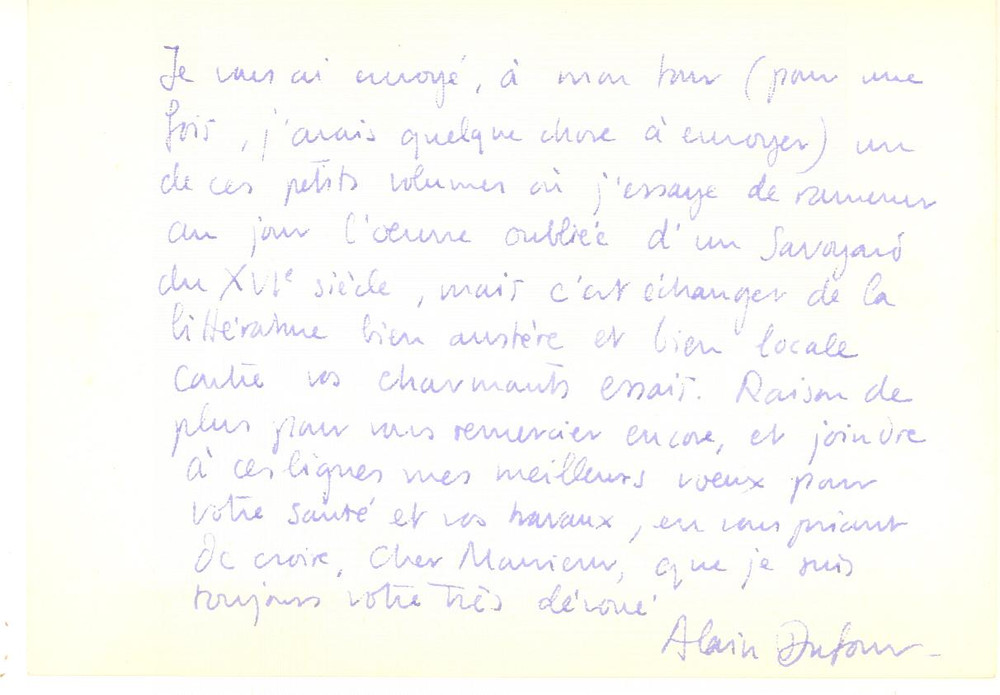 Je vous ai envoyé, à mon tour (pour une
fois, j'avais quelque chose à envoyer) un
de ces petits volumes où j'essaye de ramener
au jour l'oeuvre oubliée d'un Savoyard
du XVIe siècle, mais c'est échanger de la
littérature bien austère et bien locale
contre vos charmants essais. Raison de
plus pour vous remercier encore, et joindre
à ces lignes mes meilleurs voeux pour
votre santé et vos travaux, en vous priant
de croire, Cher Monsieur, que je suis
toujours votre très dévoué
Alain Dufour